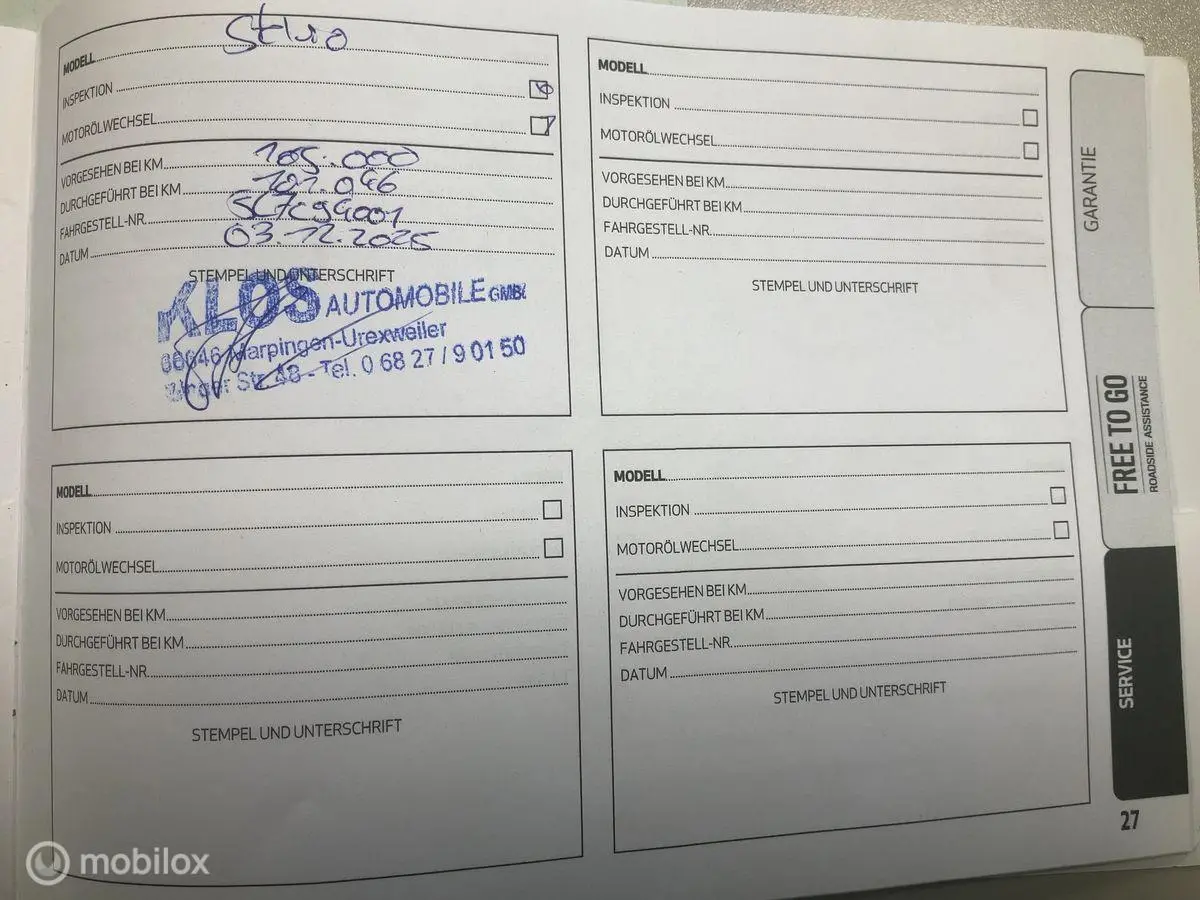 MODELL Stelvio
INSPEKTION
MOTORÖLWECHSEL
VORGESEHEN BEI KM 105.000
DURCHGEFÜHRT BEI KM 101.046
FAHRGESTELL-NR.
DATUM 03.12.2025
STEMPEL UND UNTERSCHRIFT
KLOS AUTOMOBILE GMBH
66646 Marpingen-Urexweiler
Str. 48 - Tel. 0 68 27 / 9 01 50
MODELL
INSPEKTION
MOTORÖLWECHSEL
VORGESEHEN BEI KM
DURCHGEFÜHRT BEI KM
FAHRGESTELL-NR.
DATUM
STEMPEL UND UNTERSCHRIFT
MODELL
INSPEKTION
MOTORÖLWECHSEL
VORGESEHEN BEI KM
DURCHGEFÜHRT BEI KM
FAHRGESTELL-NR.
DATUM
STEMPEL UND UNTERSCHRIFT
MODELL
INSPEKTION
MOTORÖLWECHSEL
VORGESEHEN BEI KM
DURCHGEFÜHRT BEI KM
FAHRGESTELL-NR.
DATUM
STEMPEL UND UNTERSCHRIFT
GARANTIE
FREE TO GO
ROADSIDE ASSISTANCE
SERVICE
27
mobilox